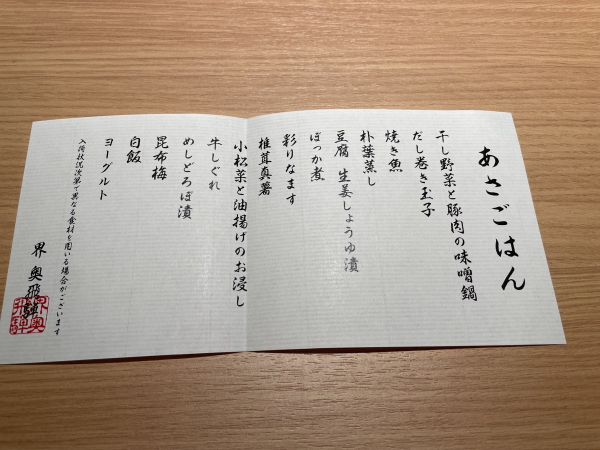 あさごはん
干し野菜と豚肉の味噌鍋
だし巻き玉子
焼き魚
朴葉蒸し
豆腐 生姜しょうゆ漬
ぼっか煮
彩りなます
椎茸真薯
小松菜と油揚げのお浸し
牛しぐれ
めしどろぼ漬
昆布梅
白飯
ヨーグルト
入荷状況次第で異なる食材を用いる場合がございます
界 奥飛騨